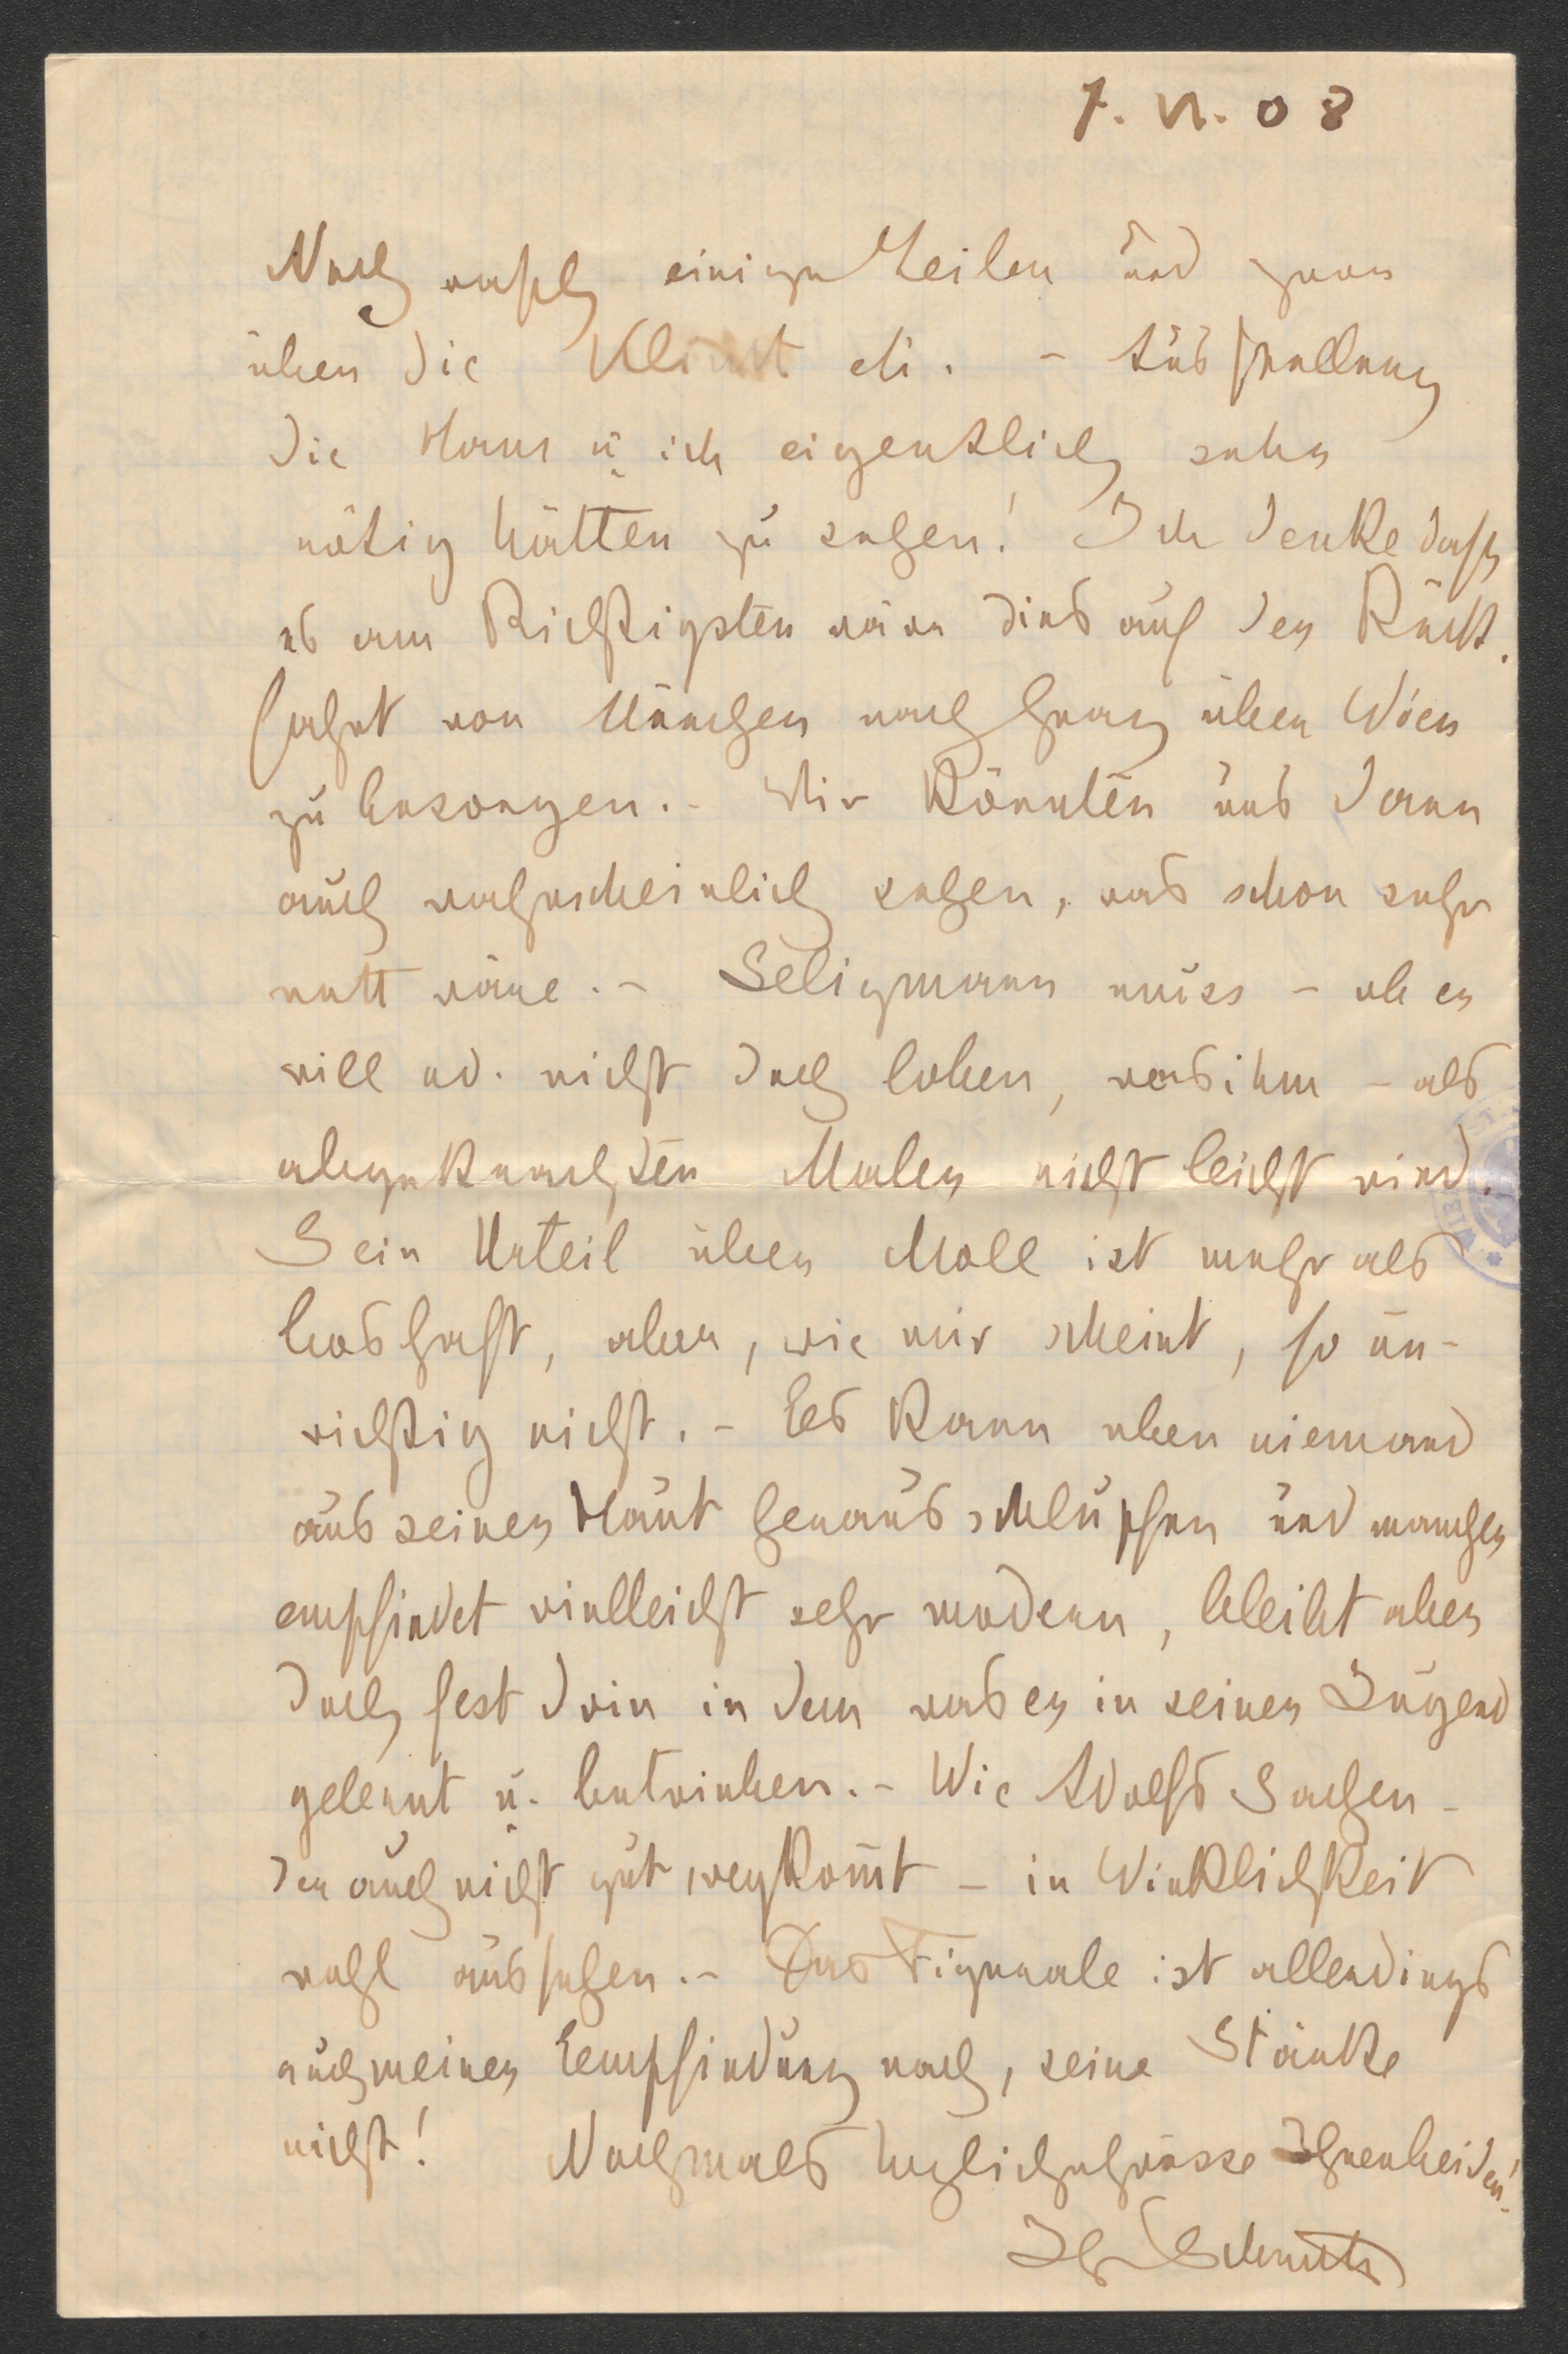 7. VI. 08
Noch rasch einige Zeilen und zwar
über die Klimt cli. - Ausstellung
die Hans u. ich eigentlich sehr
nötig hätten zu sehen! Ich denke dass
es am Richtigsten wäre dies auf der Rück-
fahrt von München nach Graz über Wien
zu besorgen. - Wir könnten uns dann
auch wahrscheinlich sehen, was schon sehr
nett wäre. - Seligmann muss - ob er
will od. nicht doch loben, was ihm - als
abgekrachten Maler nicht leicht wird.
Sein Urteil über Moll ist mehr als
boshaft, aber, wie mir scheint, so un-
richtig nicht. - Es kann eben niemand
aus seiner Haut herausschlüpfen und mancher
empfindet vielleicht sehr modern, bleibt aber
doch fest drin in dem was er in seiner Jugend
gelernt u. betrieben. - Wie Adolfs Sachen -
der auch nicht gut wegkom̄t - in Wirklichkeit
wohl aussehen. - Das Figurale ist allerdings
auch meiner Empfindung nach, seine Stärke
nicht! Nochmals herzliche Grüsse Ihnen beiden!
Ihr